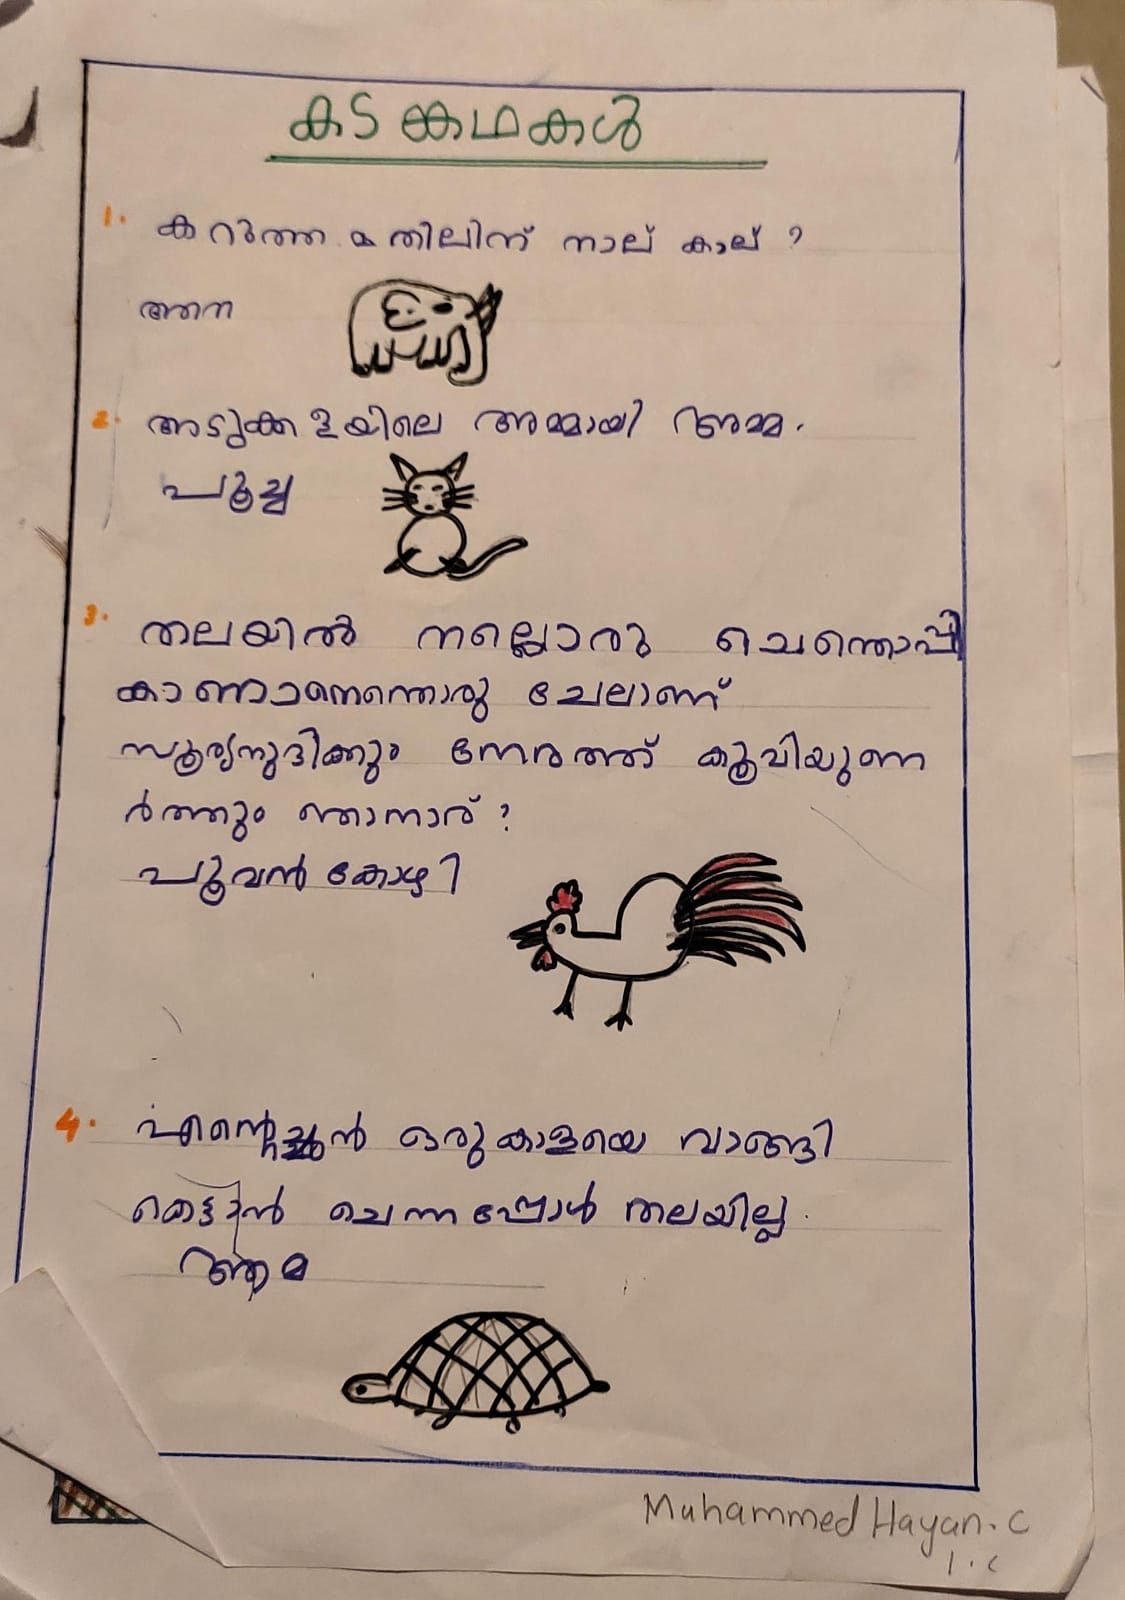 കടങ്കഥകൾ
1. കറുത്ത മതിലിന് നാല് കാല് ?
ആന
2. അടുക്കളയിലെ അമ്മായി അമ്മ.
പൂച്ച
3. തലയിൽ നല്ലൊരു ചെന്തൊപ്പി
കാണാനെന്തൊരു ചേലാണ്
സൂര്യനുദിക്കും നേരത്ത് കൂവിയുണ
ർത്തും ഞാനാര് ?
പൂവൻ കോഴി
4. എന്റെച്ചൻ ഒരു കാളയെ വാങ്ങി
കെട്ടാൻ ചെന്നപ്പോൾ തലയില്ല.
ആമ
Muhammed Hayan. C
1. C